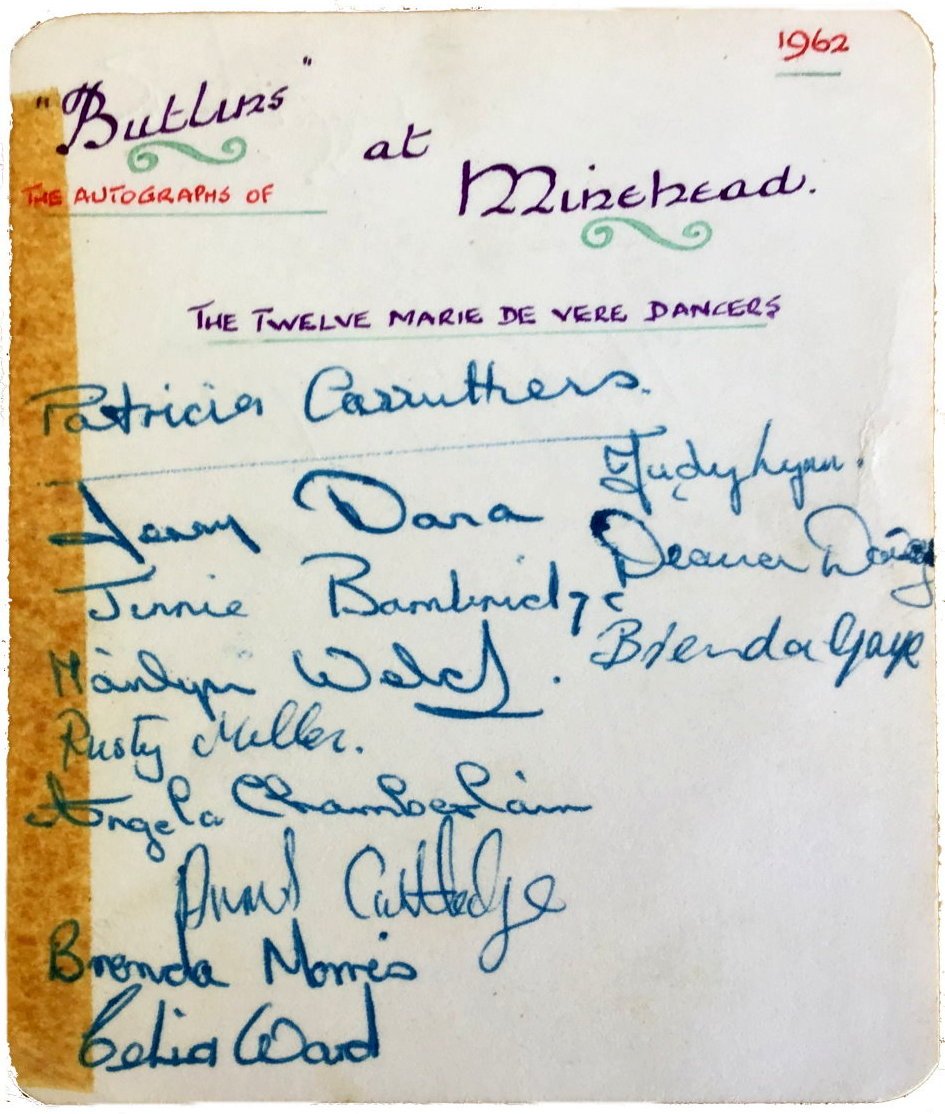 1962
"Butlins"
at
Minehead.
THE AUTOGRAPHS OF
THE TWELVE MARIE DE VERE DANCERS
Patricia Carruthers.
Jenny Dana
Jinnie Bambridge
Marilyn Welch.
Rusty Miller.
Angela Chamberlain
Cuttledge
Brenda Morris
Celia Ward
Judy Lynn.
Deana
Brenda Gaye